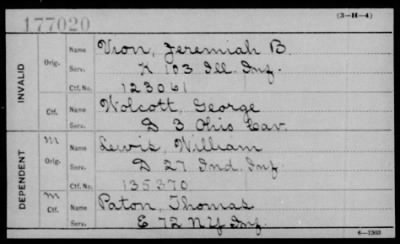 177020 (3—H—4)
INVALID
Orig. Name Vron, Jeremiah B.
Serv. K 103 Ill. Inf.
Ctf. No. 123061
Ctf. Name Wolcott, George
Serv. D 3 Ohio Cav.
DEPENDENT
M
Orig. Name Lewis, William
Serv. D 27 Ind. Inf.
Ctf. No. 135370
M
Ctf. Name Paton, Thomas
Serv. E 72 N Y Inf.
6—1303